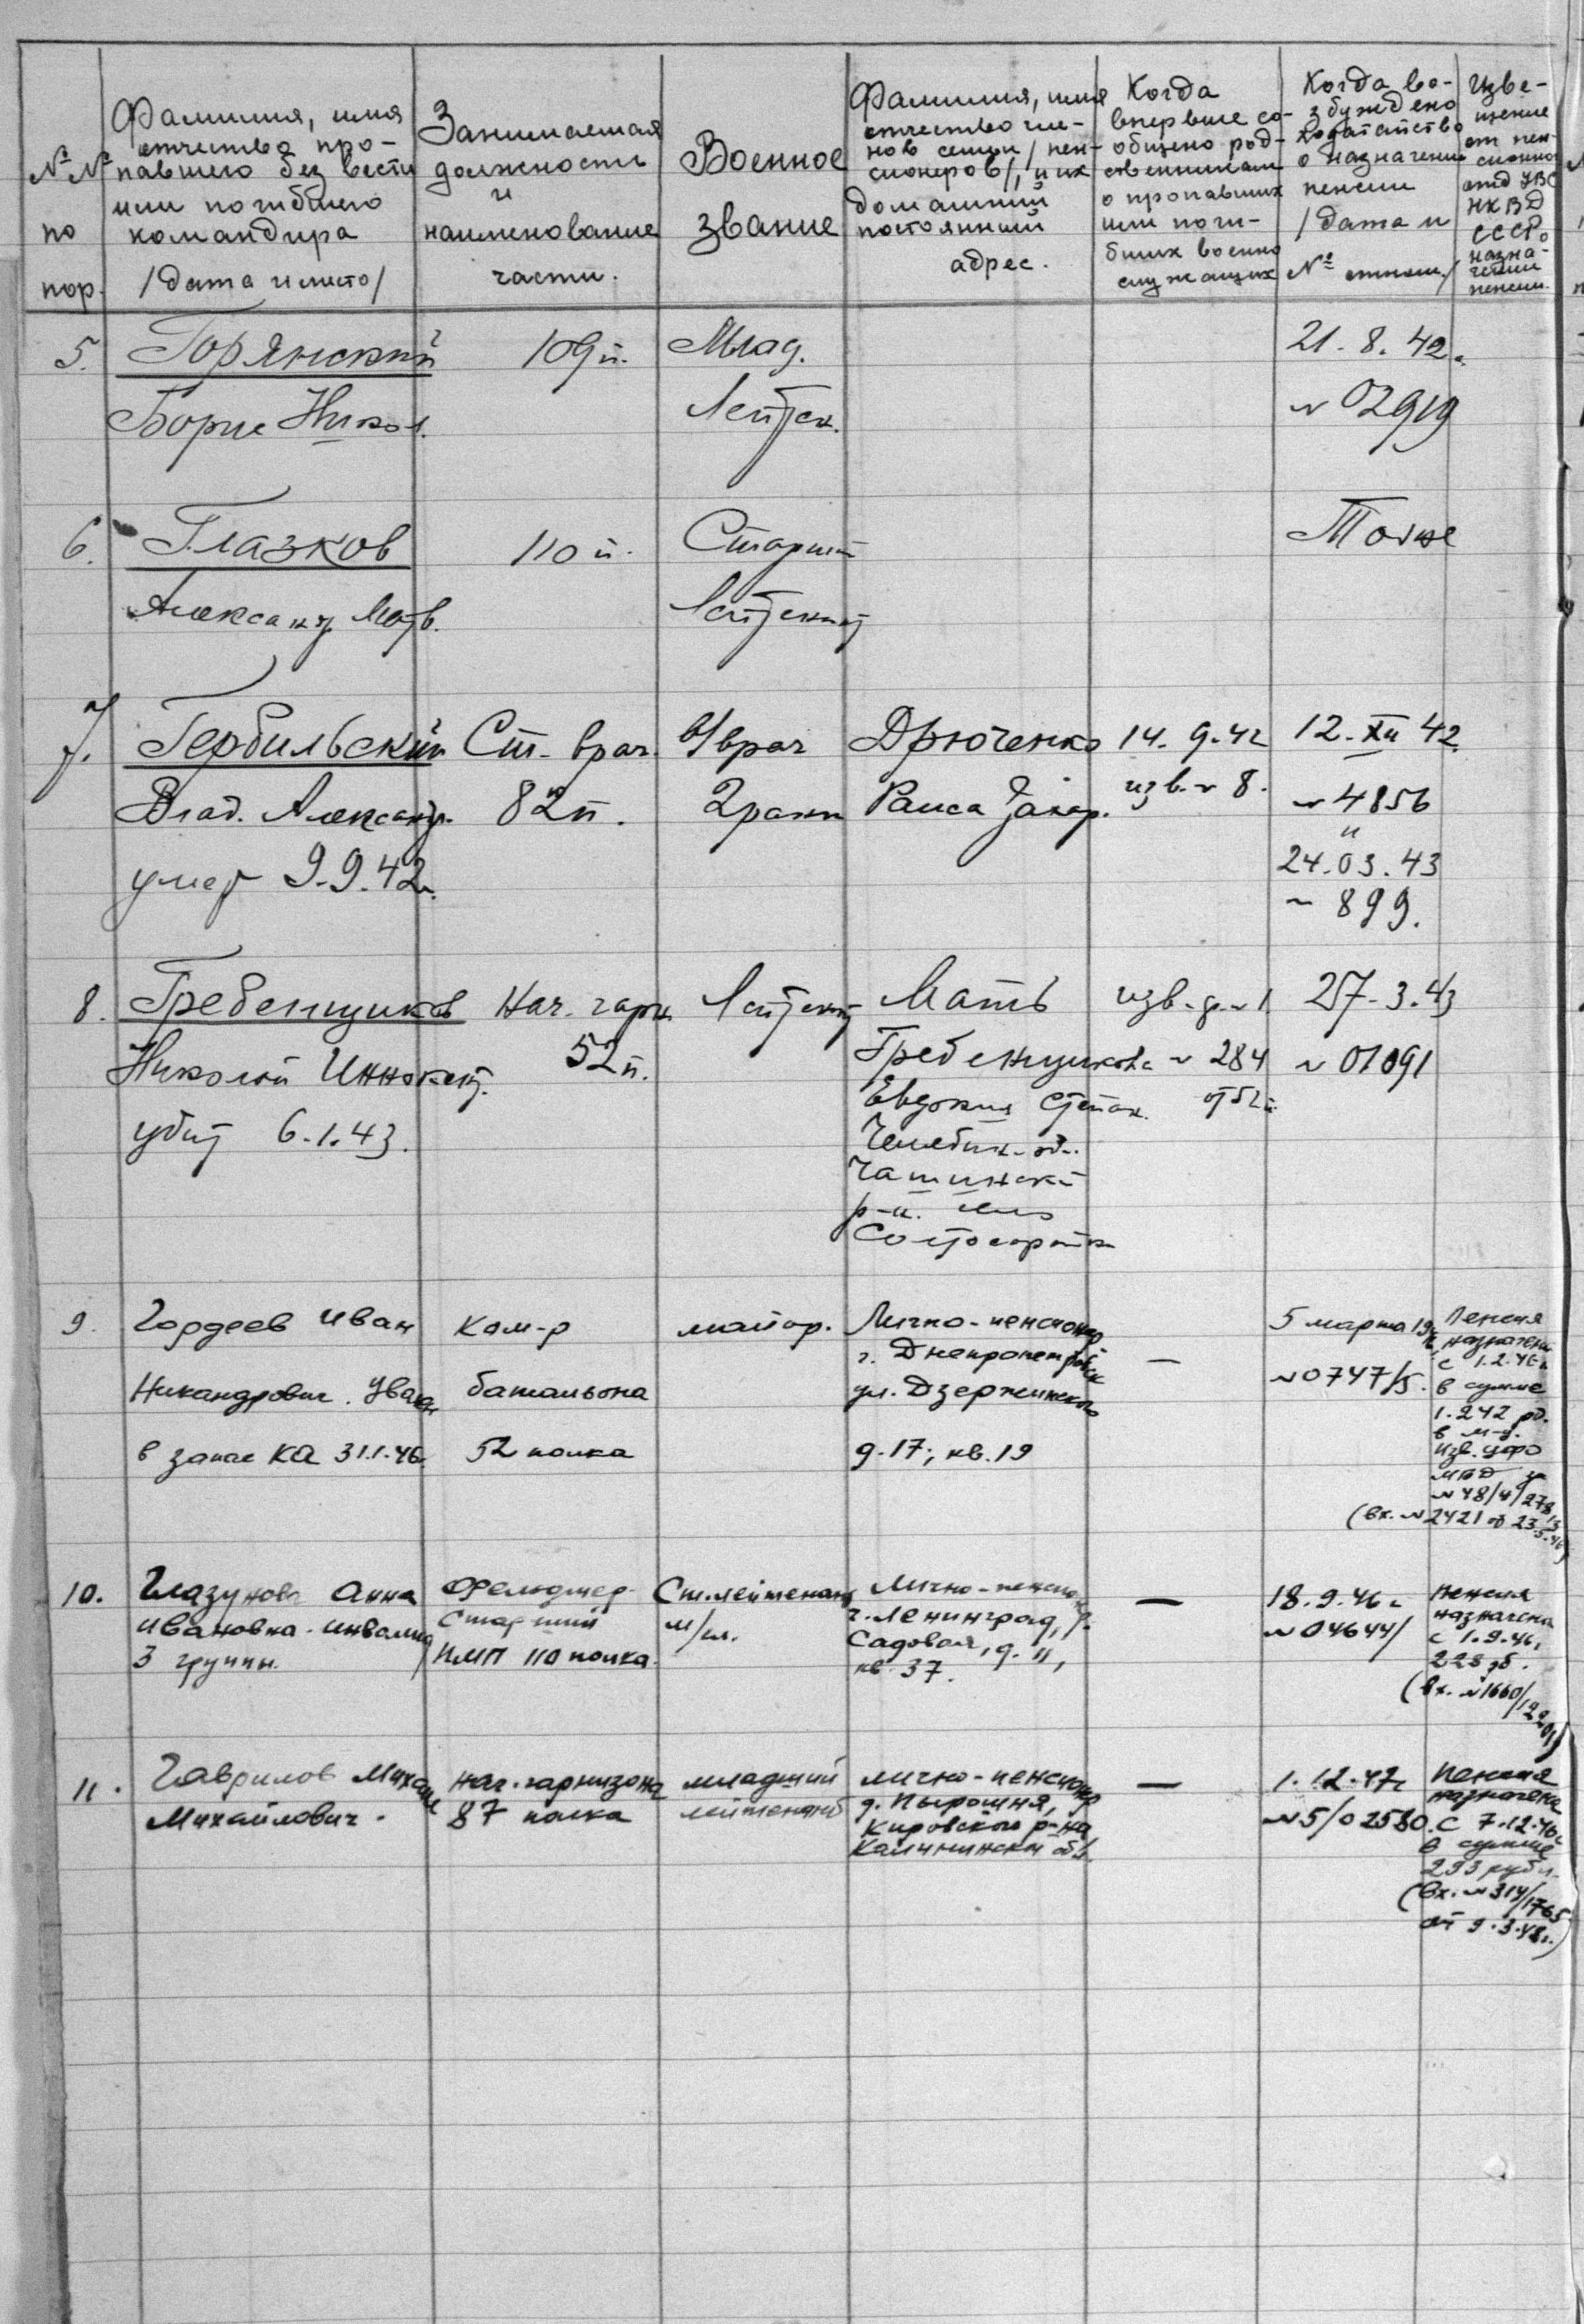 № № по пор.
Фамилия, имя
отчество про-
павшего без вести
или погибшего
командира
/дата и место/
Занимаемая
должность
и
наименование
части.
Военное
звание
Фамилия, имя
отчество чле-
нов семьи /пен-
сионеров/, и их
домашний
постоянный
адрес.
Когда
впервые со-
общено род-
ственникам
о пропавших
или поги-
бших военно
служащих
Когда во-
збуждено
ходатайство
о назначении
пенсии
/дата и
№ отнош./
Изве-
щение
от пен-
сионно
отд УВС
НКВД
СССР о
назна-
чении
пенсии.
5. Горянский 109 п. Млад. 21.8.42г.
Борис Никол. Лейтен. № 02919
6. Глазков 110 п. Старший Тоже
Александр Матв. Лейтенант
7. Гербильский Ст. врач. В/врач Дрюченко 14.9.42 12.XII 42.
Влад. Александр. 82 п. 2 ранг Раиса Захар. изв. № 8. № 4856
и
умер 9.9.42г. 24.03.43
№ 899.
8. Гребенщиков Нач. гарн. Лейтенант Мать изв. № 1 27-3.43
Николай Иннокент. 52 п. Гребенщикова № 284 № 01091
Евдокия Степан.
убит 6.1.43. Челябин. об.
Чашинский
р-н. село
9. Гордеев Иван Ком-р майор. Лично-пенсионер — 5 марта 19 Пенсия
г. Днепропетровск назначена
с 1.2.46г
Никандрович. Уволен батальона ул. Дзержинского № 0747/5. в сумме
1.242 рб.
в м-ц.
в запас КА 31.1.46г. 52 полка д. 17; кв. 19 Изв. ЦФО
МВД за
№ 48/4/278
(вх. № 2421 от 23.5.46)
10. Глазунова Анна Фельдшер Ст. лейтенант Лично-пенсионер. — 18.9.46г Пенсия
Ивановка. инвалид Старший м/сл. г. Ленинград, № 04644/ назначена
3 группы. ПМП 110 полка. Садовая, д. 11, с 1.9.46,
кв. 37. 228 рб.
(вх. № 1660/
11. Гаврилов Михаил нач. гарнизона младший лично-пенсионер — 1.12.47г Пенсия
Михайлович. 87 полка лейтенант д. Пырошня, № 5/02580. назначена
Кировского р-на с 7.12.46г
Калининской обл. в сумме
293 рубл.
(вх. № 314/1765
от 9.3.48г.)